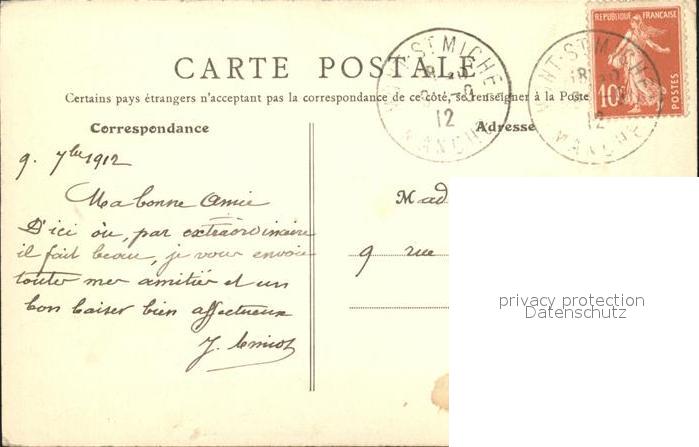 CARTE POSTALE
Certains pays étrangers n'acceptant pas la correspondance de ce côté, se renseigner à la Poste
Correspondance
Adresse
9. 7bre 1912
Ma bonne Amie
D'ici où, par extraordinaire
il fait beau, je vous envoie
toutes mes amitiés et un
bon baiser bien affectueux
J.
Mad
9 rue
REPUBLIQUE FRANÇAISE
10c
POSTES
MONT-ST MICHEL
18
9-9
12
MANCHE
MONT-ST MICHEL
18
12
MANCHE
privacy protection
Datenschutz